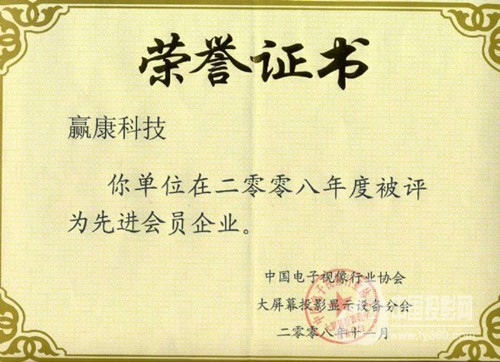 荣誉证书
赢康科技
你单位在二零零八年度被评
为先进会员企业。
中国电子视像行业协会
大屏幕投影显示设备分会
二零零八年十一月